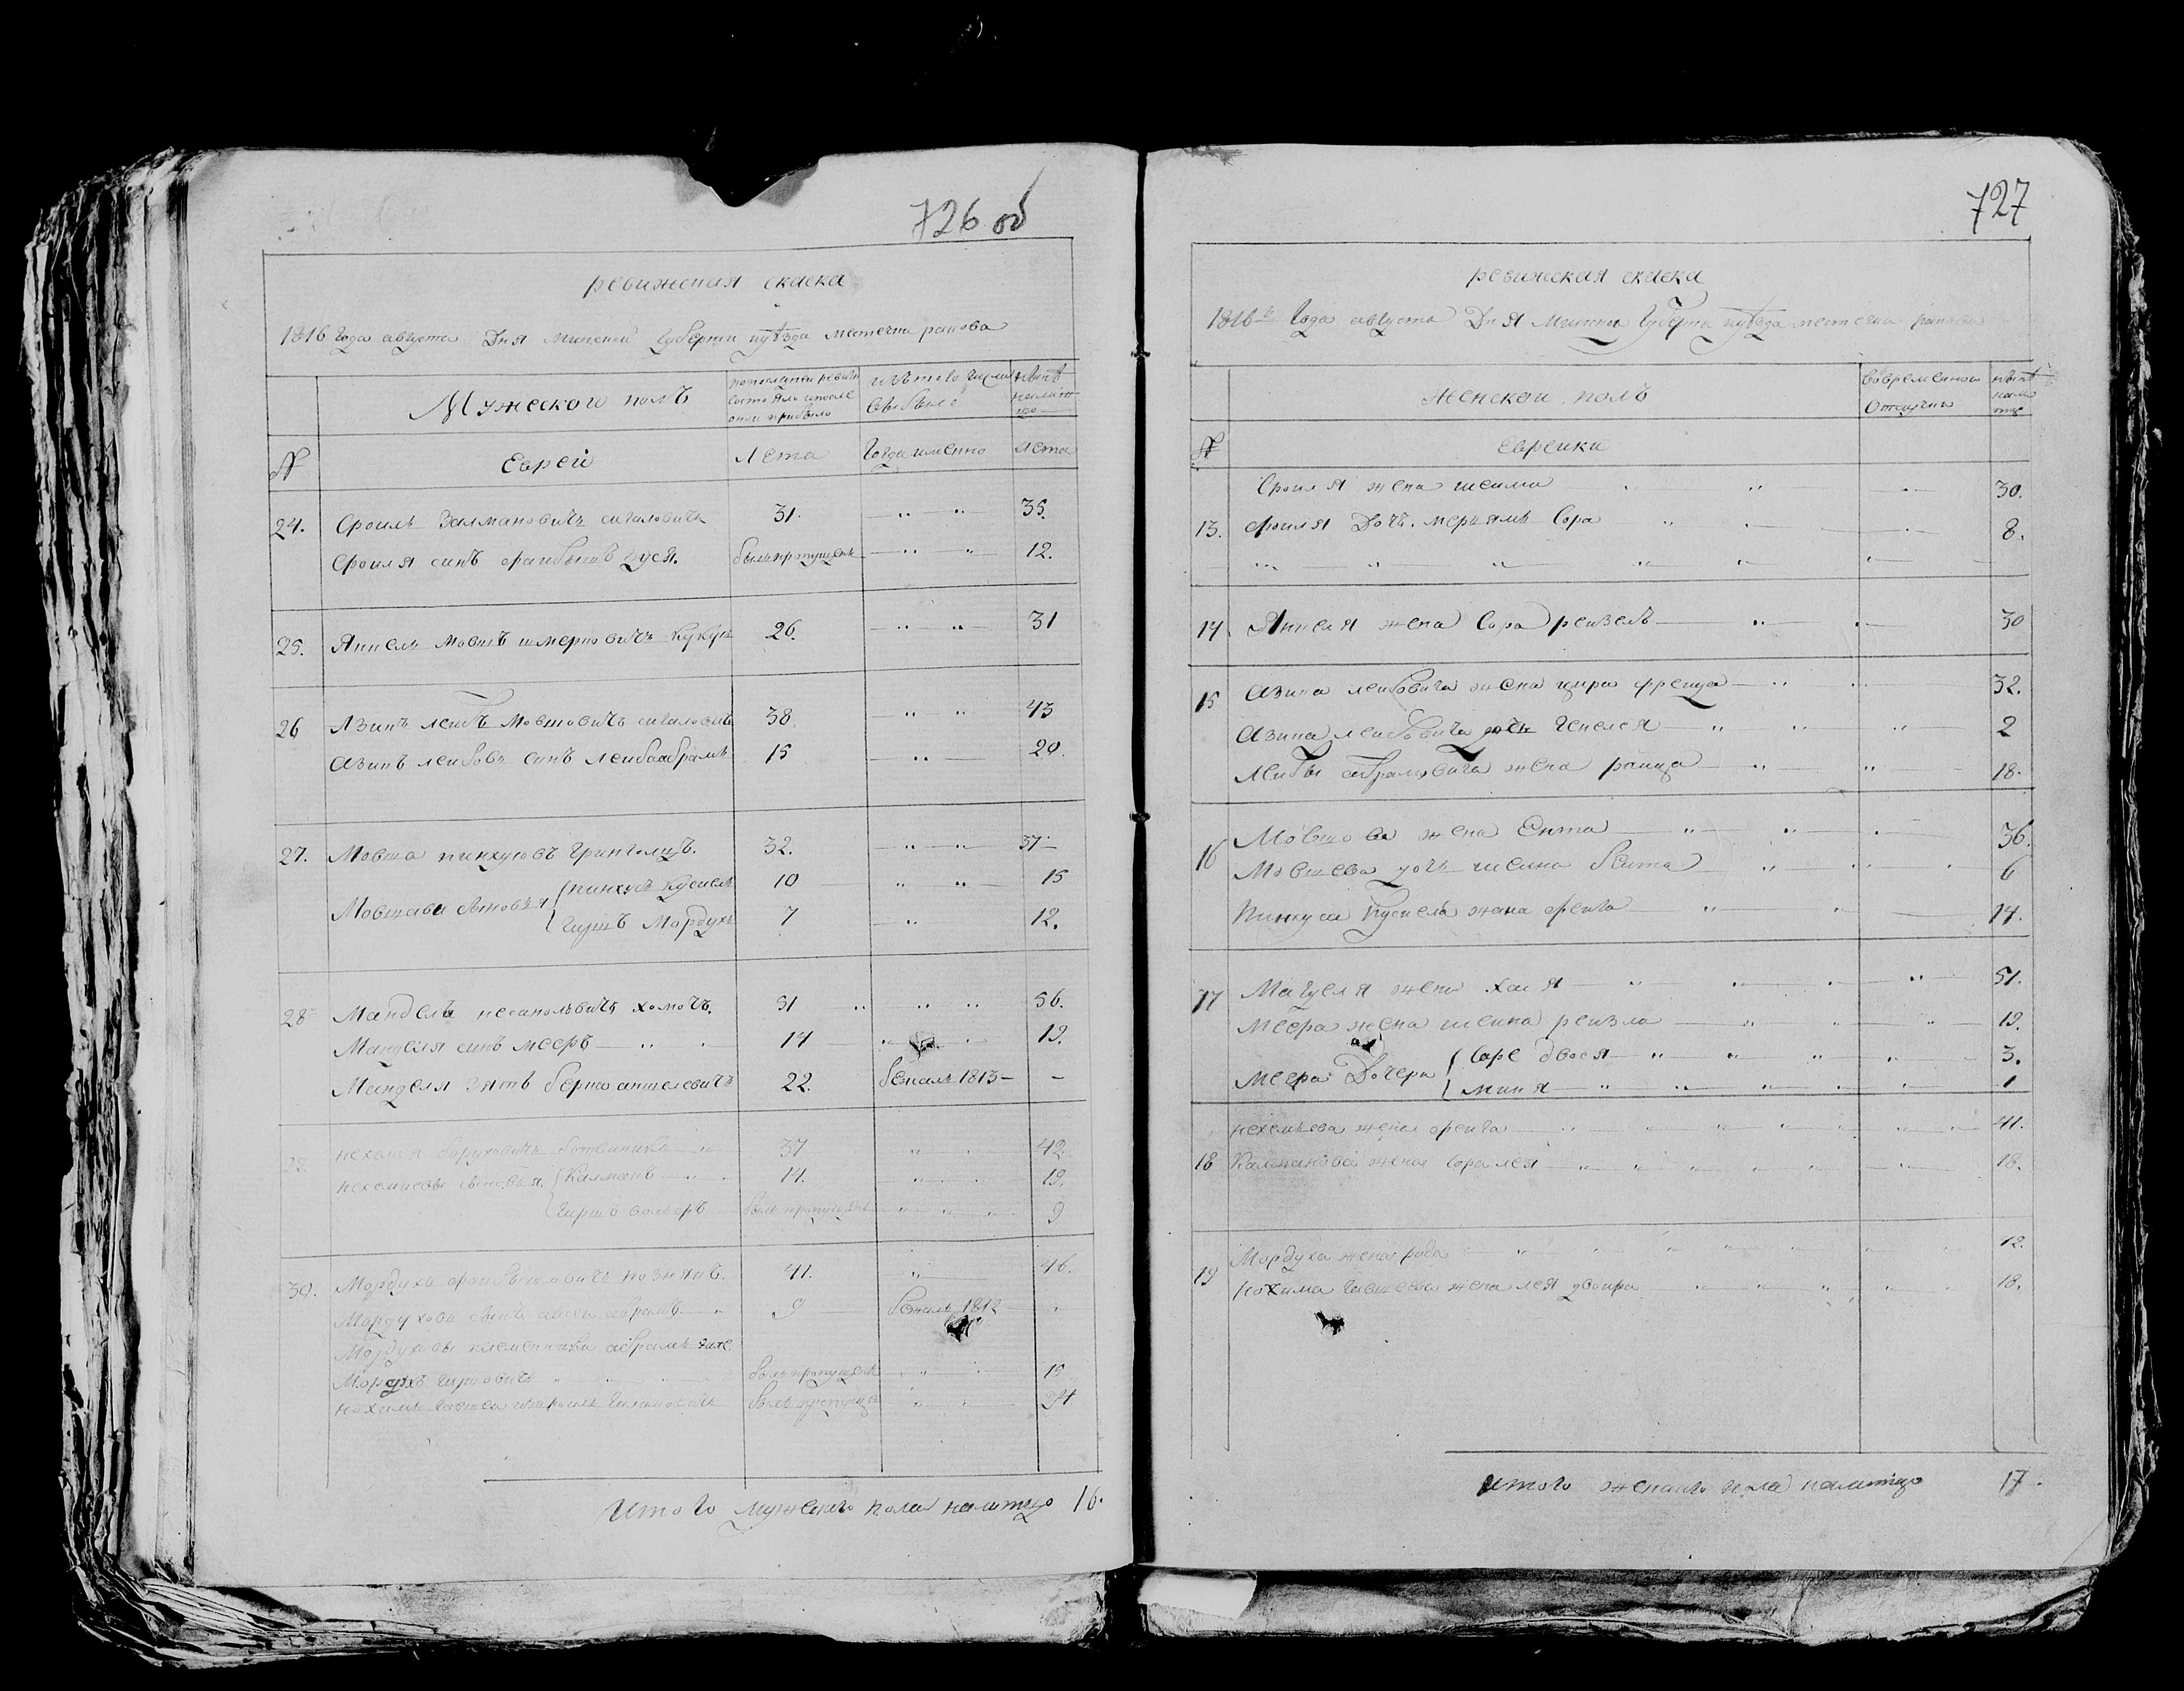 726 об
ревижская скаска
1816 года августа Дня минской губерни уѣзда местечка ракова
Мужеской полъ
попоследней ревизи состояло ипосле онои прибыло
изъ того числа выбыло
нынѣ налицо
№
Еврей
Лета
Когда именно
лета
24. Сроиль Залмановичъ 31. 35.
Сроиля синъ зуся. былъ пропущенъ 12.
25. Янкель Мовшъ шмерковичъ 26. 31
26 Азикъ леибъ Мовшовичъ 38. 43
Азикъ леибовъ синъ Леибаабрамъ 15 20.
27. Мовша пинхусовъ 32. 37
Мовшави сыновья пинхусъ Кусиель 10 15
гиршъ Мордухъ 7 12.
28 Мандель хомочъ. 51 56.
Манделя синъ мееръ 14 19.
Манделя зять берка аншелевичъ 22. бежалъ 1813
29. Нехемея боруховичъ 37 42.
нехемиевы сыновья Калманъ 14. 19.
гиршъ былъ пропущенъ 9
30. Мордухъ познякъ. 41. 46.
Мордуховъ сынъ абрамъ 9 бежалъ 1812
Мордуховы племенники абрамъ
Мордухъ гиршовичъ былъ пропущенъ 15
Нохимъ былъ пропуще 24
Итого мужеского пола налитцо 16.
727
ревижская скаска
1816 года августа Дня Минской губерни уѣзда местечка ракова
Женской полъ
вовременной отлучки
нынѣ налицо
№
Евреики
Сроиля жена 30.
13. Сроиля Дочъ. мерьямъ Сора 8.
14. Янкеля жена Сора реизель 30
15 Азика леибовича жена цира фреида 32.
Азика леибовича дочь генеся 2
Леибы абрамовича жена раица 18.
16 Мовшова жена Ента 36.
Мовшева дочь шеина беита 6
Пинхуса Кусиеля жена фреига 14.
17 Манделя жена хая 51.
Меера жена шеина реизла 19.
Меера Дочери Саре двося 3.
миня 1
нехемьева жена фреига 41.
18 Калманова жена сора лея 18.
19 Мордуха жена рода 12.
Нохима жена лея двоира 18.
Итого женского пола налитцо 17.